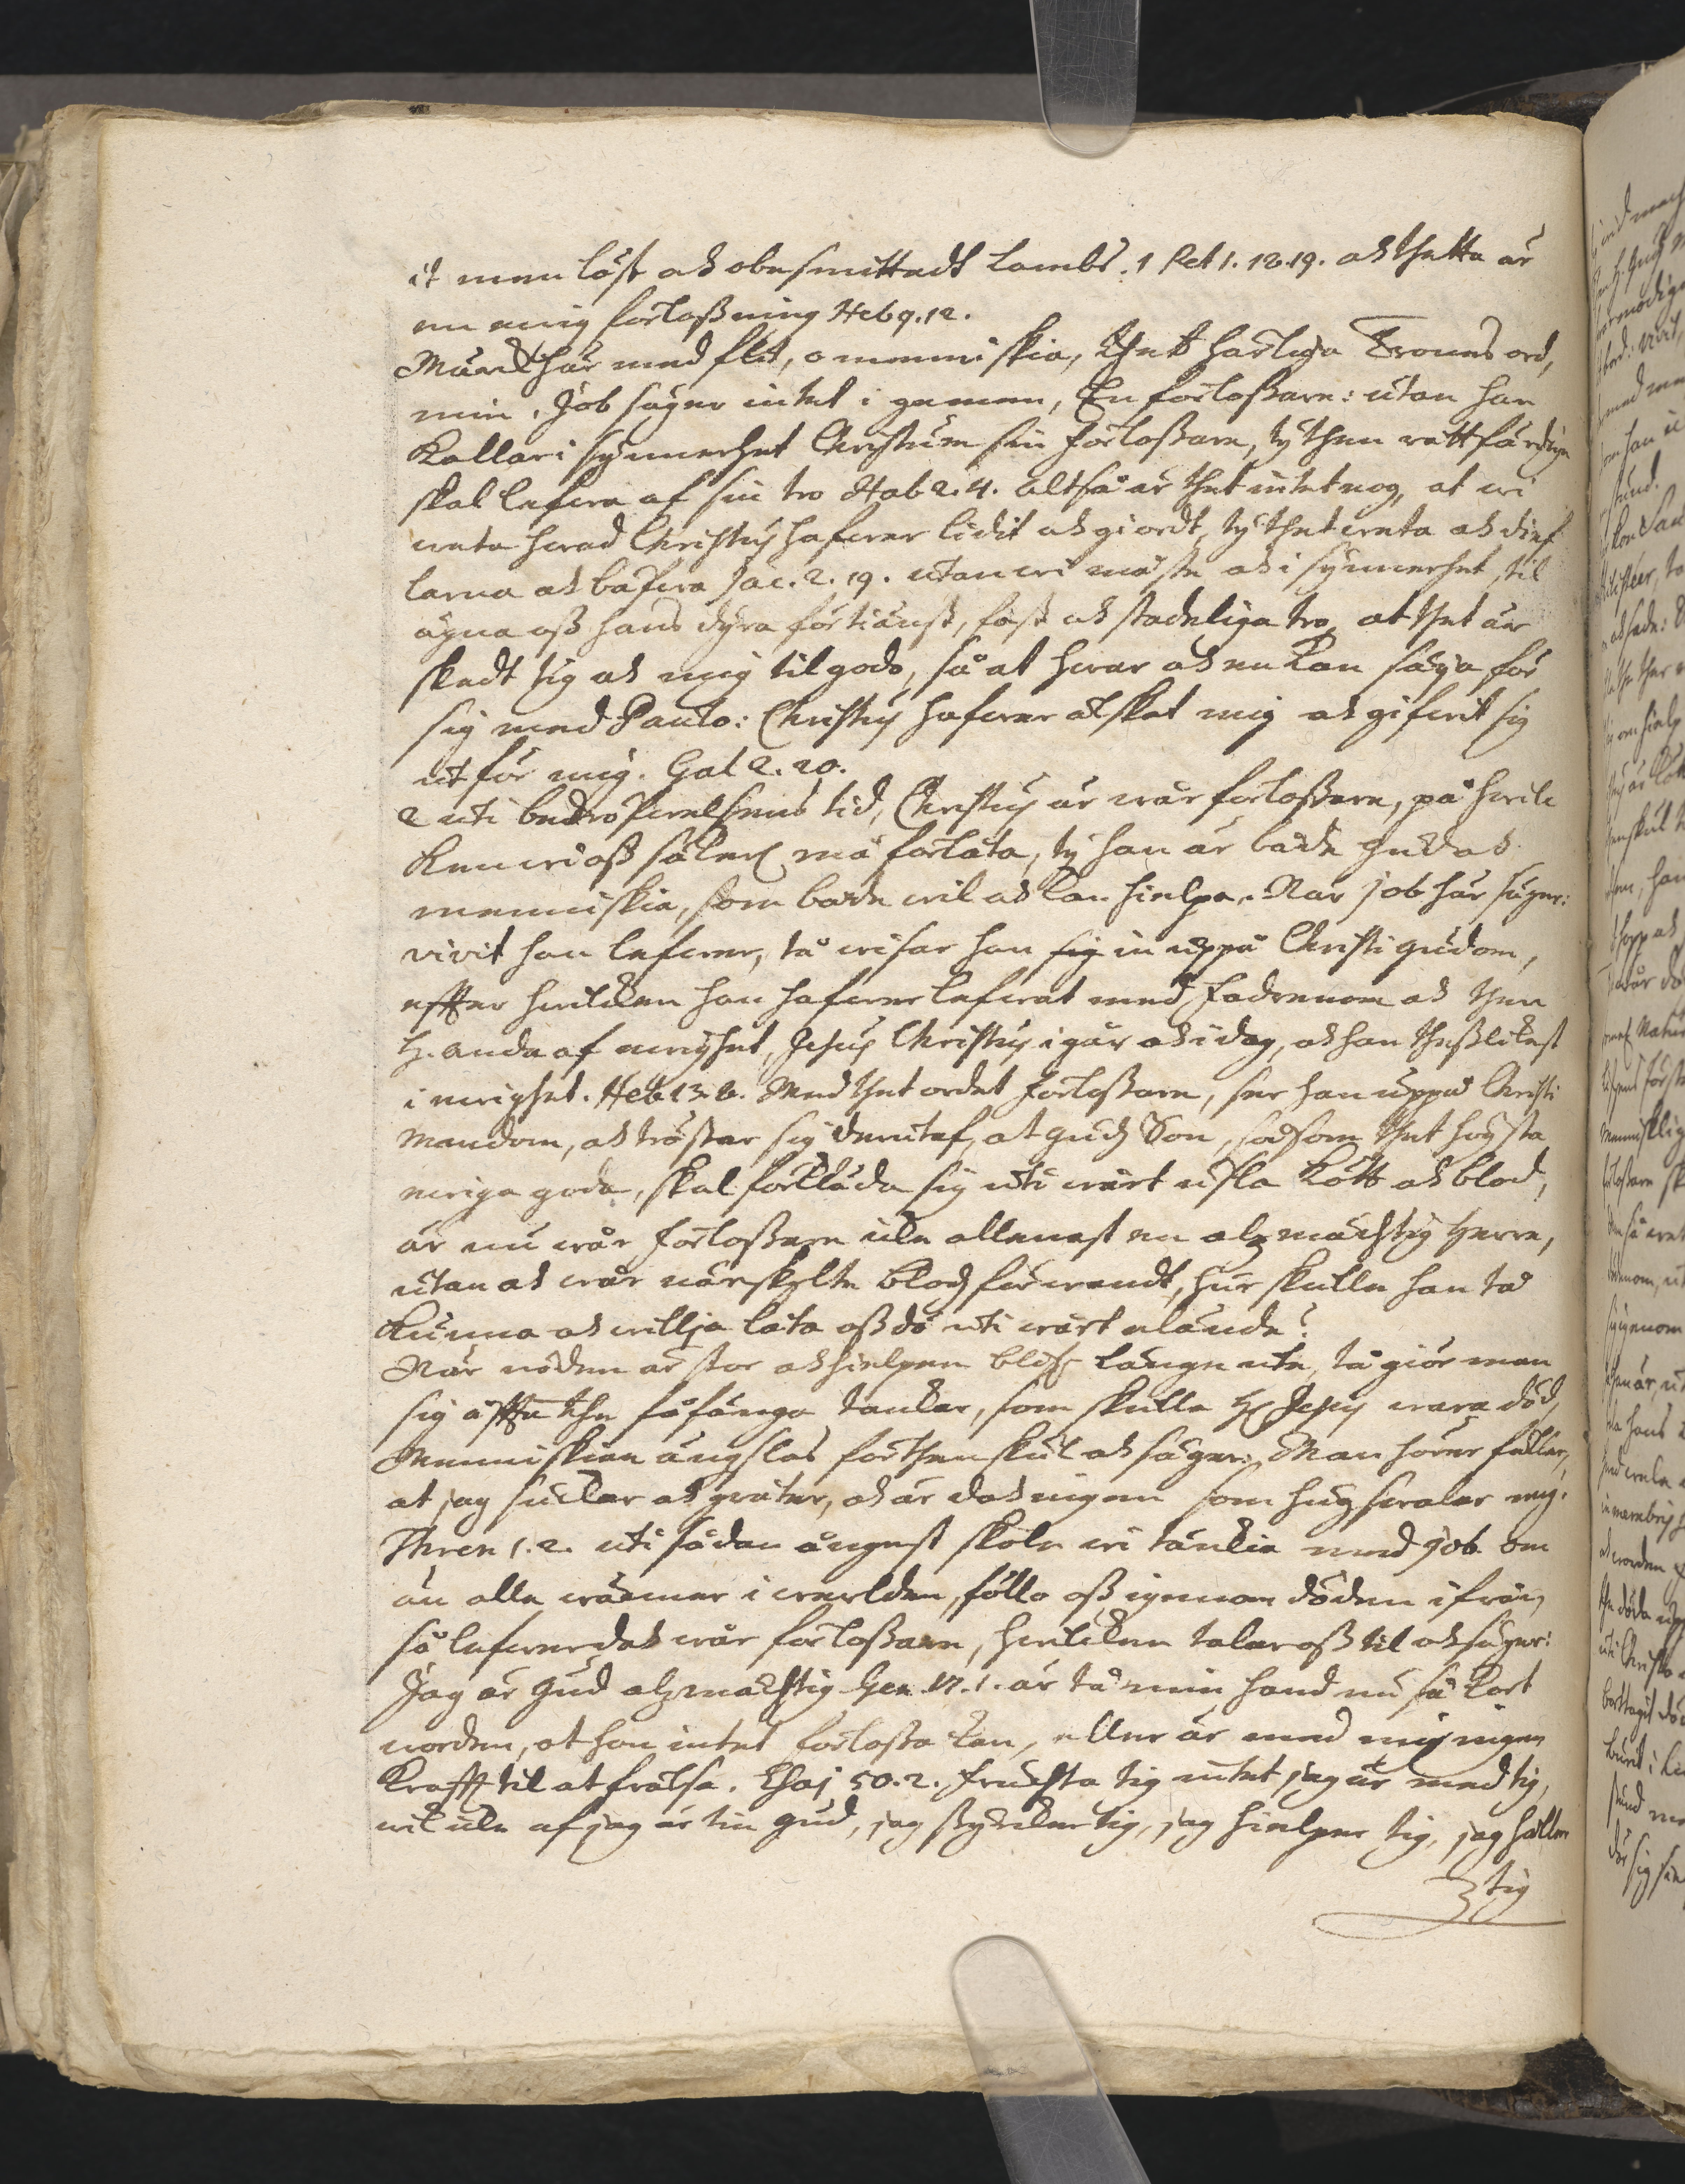 it menlöst och obesmittadt Lambs. 1 Pet 1. 18.19. och thetta är
een ewig förloßning Heb 9.12.
Märck här med flit, o menniskia, thett härliga Trones ord,
min. Job säger intet i gemen, En förloßare: utan han
kallar i synnerhet Christum sin förloßare, ty then rättfärdige
skal lefwa af sin tro Hab 2.4. altså är thet intet nog, at wi
weta hwad Christus hafwer lidit och giordt, ty thet weta och dief
larna och bäfwa Jac. 2. 19. utan wi måste och i synnerhet, til
ägna oß hans dyra förtiänst, fast och stadeliga tro, at thet är
skedt tig och mig til godo, så at hwar och en kan säya för
sig med Paulo: Christus hafwer älskat mig och gifwit sig
ut för mig. Gal 2. 20.
2 uti bedröfwelsenes tid, Christus är wår förloßare, på hwil
ken wi oß säkert må förlåta, ty han är både Gud och
menniskia, som både wil och kan hielpa. När Job här säger:
vivit han lefwer, tå wisar han sig in uppå Christi gudom,
effter hwilcken han hafwer lefwat med Fadrenom och then
H. anda af ewighet, Jesus Christus i går och i dag, och han theßlikest
i ewighet. Heb 13. 8. Med thet ordet förloßare, ser han uppå Christi
mandom, och tröstar sig derutaf, at Guds Son, såsom thet högsta
ewiga goda, skal förkläda sig uti wårt usla kött och blod,
är nu wår förloßare icke allenast en alzmächtig Herre,
utan och wår närskylte blodz förwandt, hur skulle han tå
kunna och willja låta oß dö uti wårt elände?
När nöden är stor och hielpen blifr länge ute, tå giör man
sig offta the fåfänga tanckar, som skulle H. Jesus wara död,
Menniskian ängslas förthenskul och säger: Man hörer fuller,
at jag suckar och gråter, och är doch ingen som hugswalar mig.
Thren 1. 2. uti sådan ångest skole wi tänckia med Job. om
än alla wänner i werlden, föllo oß igenom döden ifrån,
så lefwer doch wår förloßare, hwilcken talar oß til och säger:
Jag är Gud alzmächtig Gen. 17. 1. är tå min hand nu så kort
worden, at hon intet förloßa kan, eller är med mig ingen
Krafft til at frälsa. Esaj 50. 2. fruchta tig intet jag är med tig,
wik icke af jag är tin Gud, jag styrcker tig, jag hielper tig, jag håller
tig